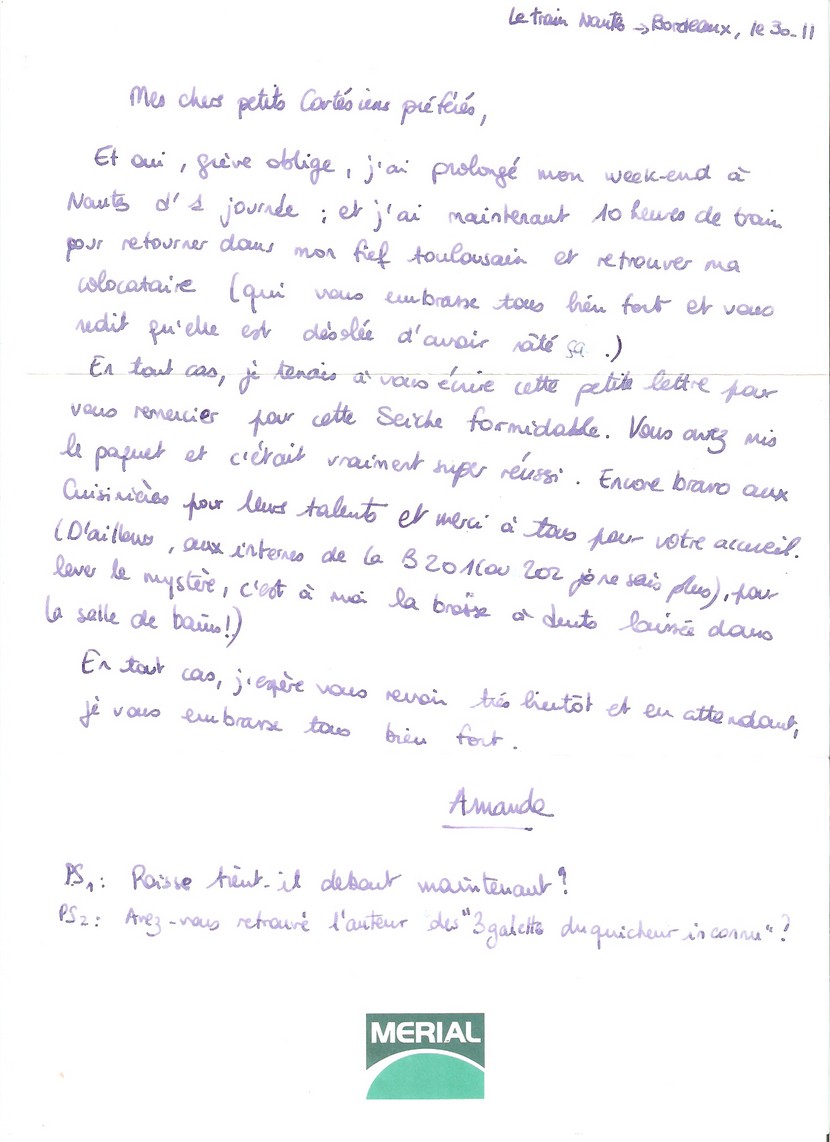 Le train Nantes → Bordeaux, le 30-11
Mes chers petits Cartésiens préférés,
Et oui, grève oblige, j'ai prolongé mon week-end à
Nantes d'1 journée ; et j'ai maintenant 10 heures de train
pour retourner dans mon fief toulousain et retrouver ma
colocataire (qui vous embrasse tous bien fort et vous
redit qu'elle est désolée d'avoir râté ça.)
En tout cas, je tenais à vous écrire cette petite lettre pour
vous remercier pour cette Seiche formidable. Vous avez mis
le paquet et c'était vraiment super réussi. Encore bravo aux
Cuisinières pour leurs talents et merci à tous pour votre accueil.
(D'ailleurs, aux internes de la B201 (ou 202 je ne sais plus), pour
lever le mystère, c'est à moi la brosse à dents laissée dans
la salle de bains!)
En tout cas, j'espère vous revoir très bientôt et en attendant,
je vous embrasse tous bien fort.
Amanda
PS1: Raisse tient-il debout maintenant?
PS2: Avez-vous retrouvé l'auteur des "3 galette du quicheur inconnu"?
MERIAL